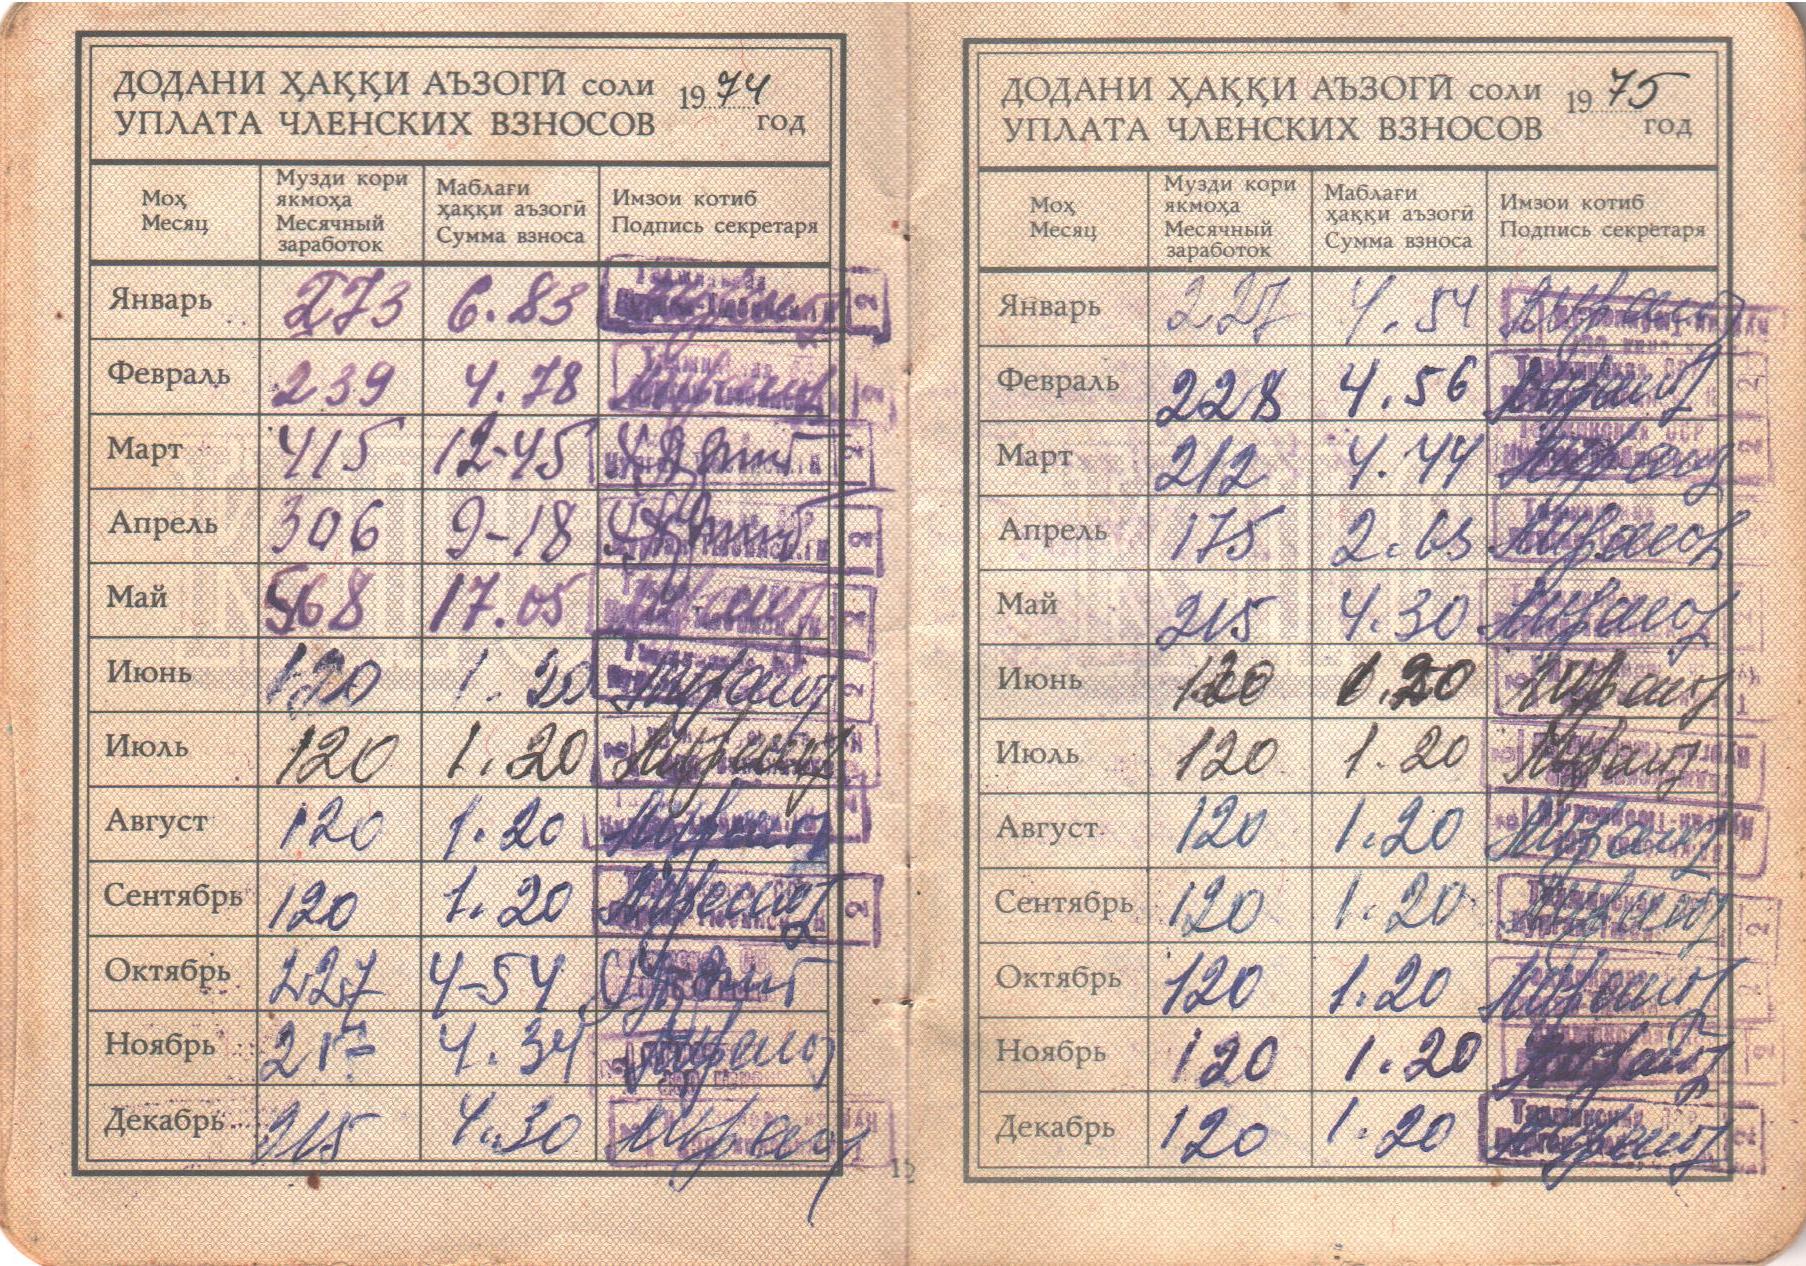 ДОДАНИ ҲАҚҚИ АЪЗОГӢ соли 1974
УПЛАТА ЧЛЕНСКИХ ВЗНОСОВ год
Моҳ
Месяц
Музди кори
якмоҳа
Месячный
заработок
Маблағи
ҳаққи аъзогӣ
Сумма взноса
Имзои котиб
Подпись секретаря
Январь 273 6.83
Февраль 239 4.78
Март 415 12-45
Апрель 306 9-18
Май 568 17.05
Июнь 120 1.20
Июль 120 1.20
Август 120 1.20
Сентябрь 120 1.20
Октябрь 227 4-54
Ноябрь 217 4.34
Декабрь 215 4.30
ДОДАНИ ҲАҚҚИ АЪЗОГӢ соли 1975
УПЛАТА ЧЛЕНСКИХ ВЗНОСОВ год
Моҳ
Месяц
Музди кори
якмоҳа
Месячный
заработок
Маблағи
ҳаққи аъзогӣ
Сумма взноса
Имзои котиб
Подпись секретаря
Январь 227 4.54
Февраль 228 4.56
Март 212 4.44
Апрель 175 2.63
Май 215 4.30
Июнь 120 1.20
Июль 120 1.20
Август 120 1.20
Сентябрь 120 1.20
Октябрь 120 1.20
Ноябрь 120 1.20
Декабрь 120 1.20